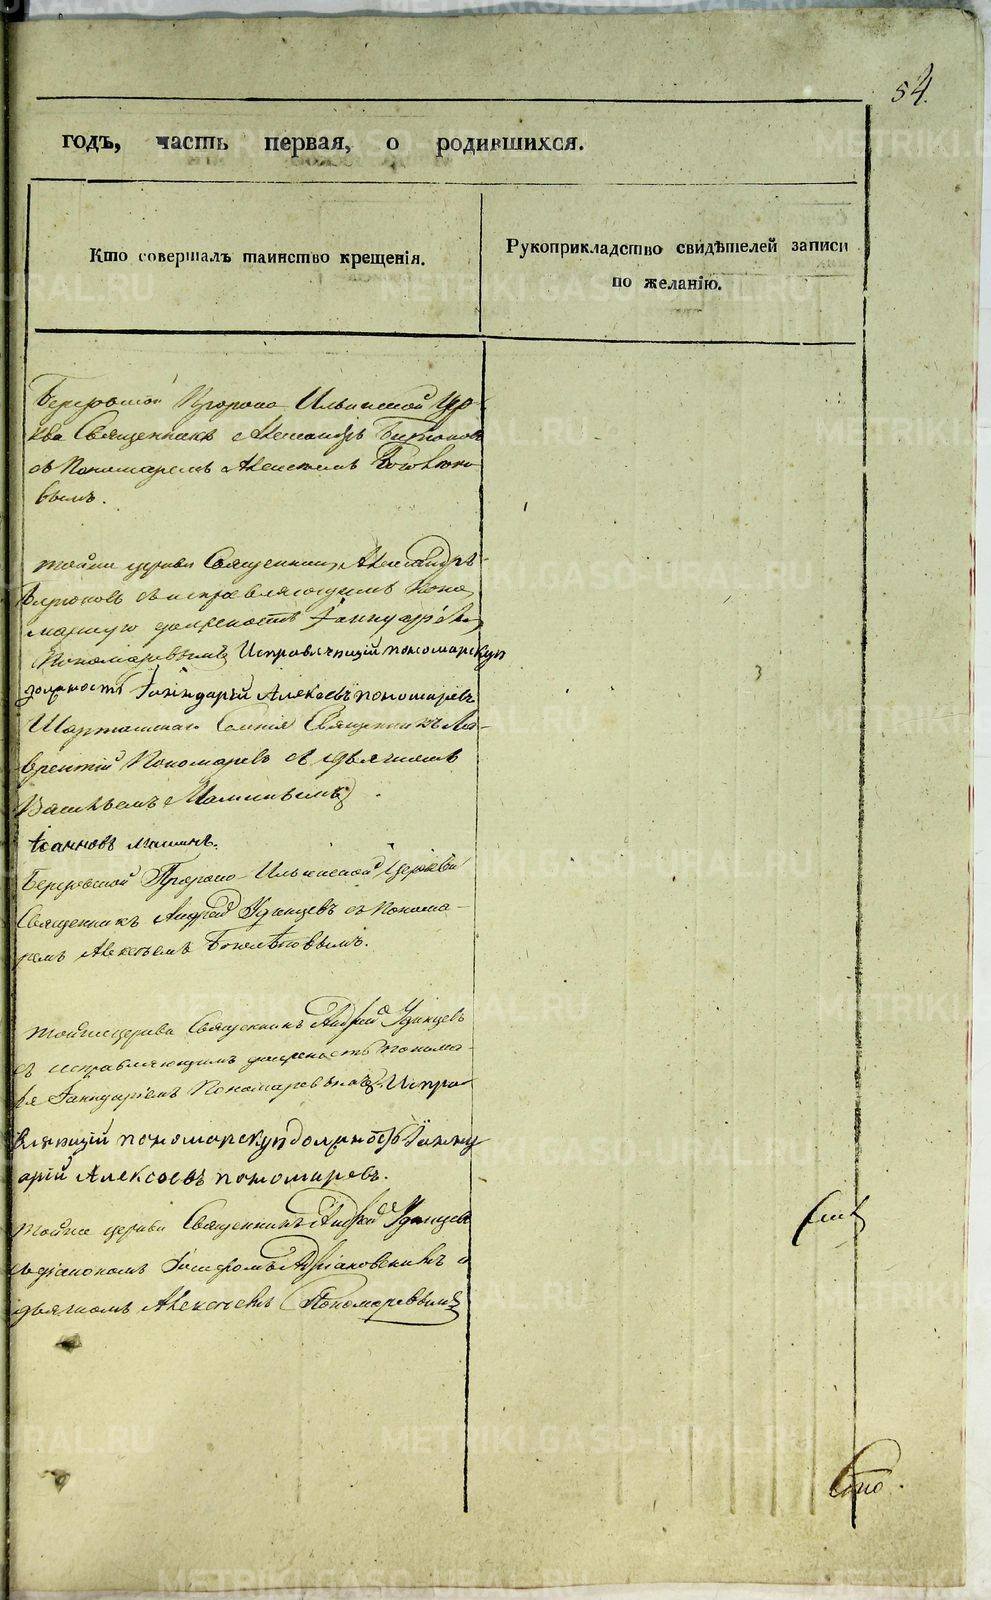 54.
годъ, часть первая, о родившихся.
Кто совершалъ таинство крещенія.
Рукоприкладство свидѣтелей записи
по желанію.
Березовской Пророко Ильинской Цер-
кви Священникъ Александръ
съ Пономаремъ Алексѣемъ
вымъ.
тойже церкви Священникъ Александръ
съ исправляющимъ Поно
марскую должность Іаннуаріемъ
Пономаревымъ Исправляющій пономарскую
должность Іаннуарій Алексѣевъ пономаревъ
Шарташскаго Священникъ Ла-
врентій Пономаревъ съ дьячкомъ
Васильемъ
Березовской Пророко-Ильинской Церкви
Священникъ Андрей Удинцевъ съ Понома-
ремъ Алексѣемъ
тойже церкви Священникъ Андрей Удинцевъ
съ исправляющимъ должность понома-
ря Іаннуаріемъ Пономаревымъ. Испра
вляющій пономарскую должность Іанну
арій Алексѣевъ пономаревъ.
тойже церкви Священникъ Андрей Удинцевъ
съ діакономъ и
дьячкомъ Алексѣемъ Пономаревымъ
METRIKI.GASO-URAL.RU